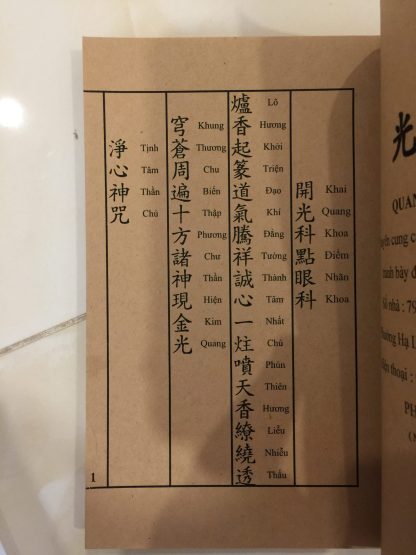 開光科點眼科
Khai Quang Khoa Điểm Nhãn Khoa
爐香起篆道氣騰祥誠心一炷噴天香繚繞透
Lô Hương Khởi Triện Đạo Khí Đằng Tường Thành Tâm Nhất Chú Phún Thiên Hương Liễu Nhiễu Thấu
穹蒼周遍十方諸神現金光
Khung Thương Chu Biến Thập Phương Chư Thần Hiện Kim Quang
淨心神咒
Tịnh Tâm Thần Chú
1
光
QUAN
cung c
bày đ
Số nhà : 79
Hạ L
thoại :